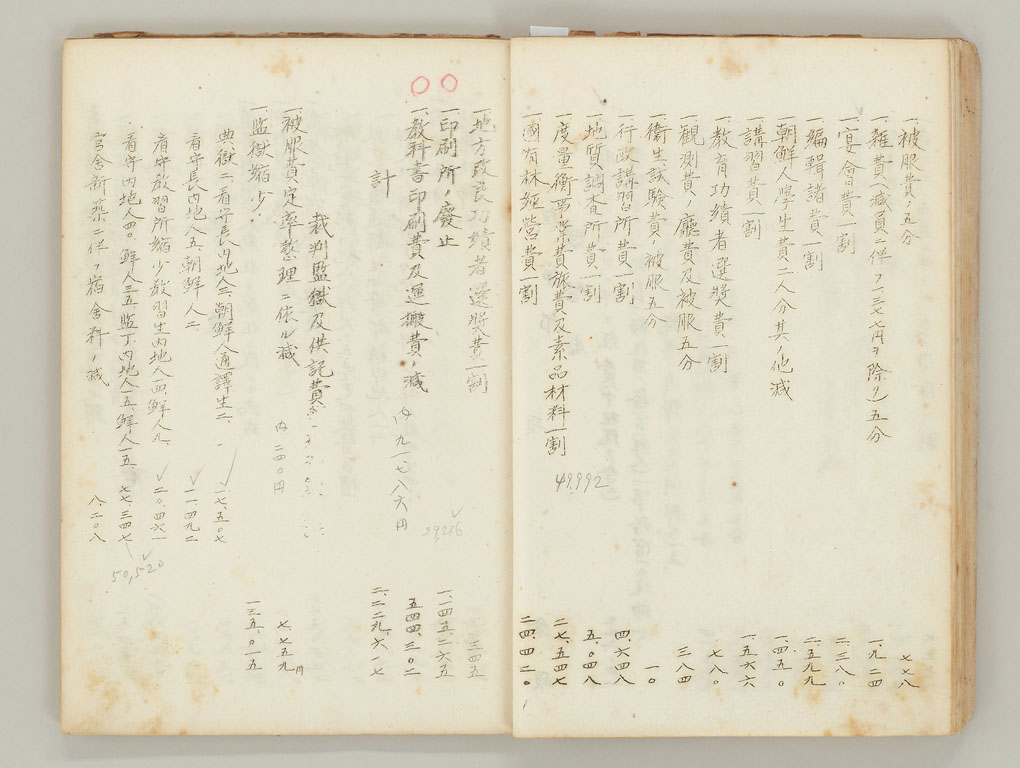 一、被服費ノ五分 七七八
一、雑費(減員ニ伴フ一三七七円ヲ除ク)五分 一、九二四
一、宴會費一割 二、三八〇
一、編輯諸費一割 二、五九九
朝鮮人學生費二人分其ノ他減 一、四五〇
一、講習費一割 一、五六六
一、教育功績者選奨費一割 七八〇
一、觀測費ノ廳費及被服五分 三八四
衛生試驗費ノ被服五分 一〇
一、行政講習所費一割 四、六四八
一、地質調査所費一割 五、〇四八
一、度量衡事業費旅費及素品材料一割 二七、五四七
49,992
一、國有林經營費一割 二四、四二〇
一、地方改良功績者選奨費一割 三四五
一、印刷所ノ廢止 一、一四五、二六五
29216
一、教科書印刷費及運搬費ノ減 内九一七、八六円 五四四、三〇二
計 二、二二九、六一七
裁判監獄及供託費
一、被服費定率整理ニ依ル減 内二四〇円 七、七五九円
一、監獄縮少 一三五、〇一五
典獄二、看守長内地人三、朝鮮人通譯生二、 一七、五〇七
看守長内地人五、朝鮮人二 一一、四九二
看守教習所縮少教習生内地人四、鮮人九、 二〇、四六一
看守内地人四〇、鮮人三五、監丁内地人一五、鮮人一五 七七、三四七
50,520
官舎新築ニ伴フ宿舎料ノ減 八、二〇八